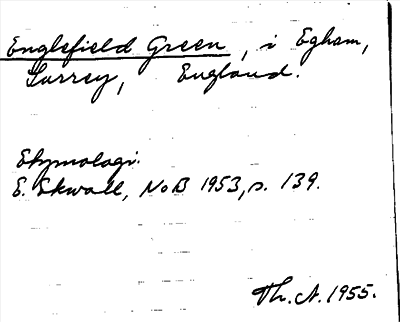 Englefield Green, i Egham,
Surrey, England.
Etymologi:
E. Ekwall, NoB 1953, s. 139.
Th. A. 1955.